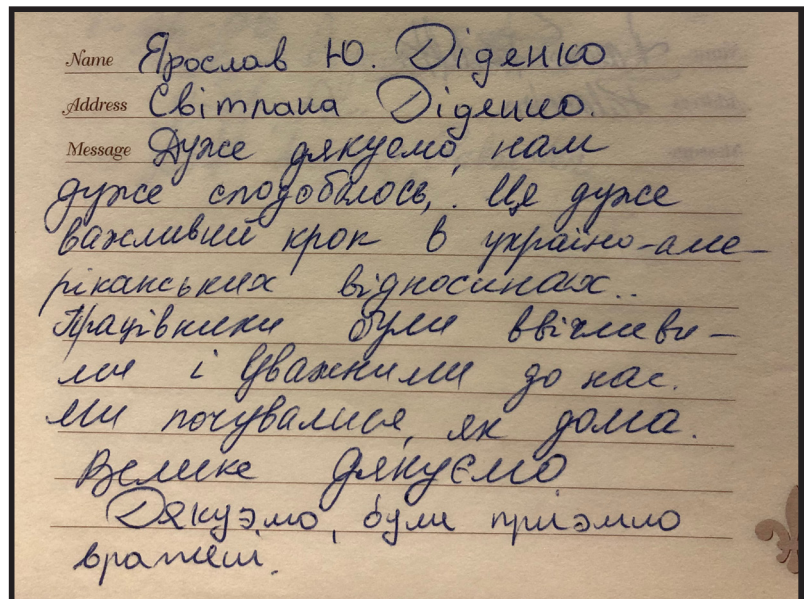 Name Ярослав Ю. Діденко
Address Світлана Діденко.
Message Дуже дякуємо, нам
дуже сподобалось,. Це дуже
важливий крок в україно-аме-
ріканських відносинах..
Працівники були ввічливи-
ми і уважними до нас.
Ми почувалися, як дома.
Велике дякуємо
Дякуэмо, були приэмно
вражені.